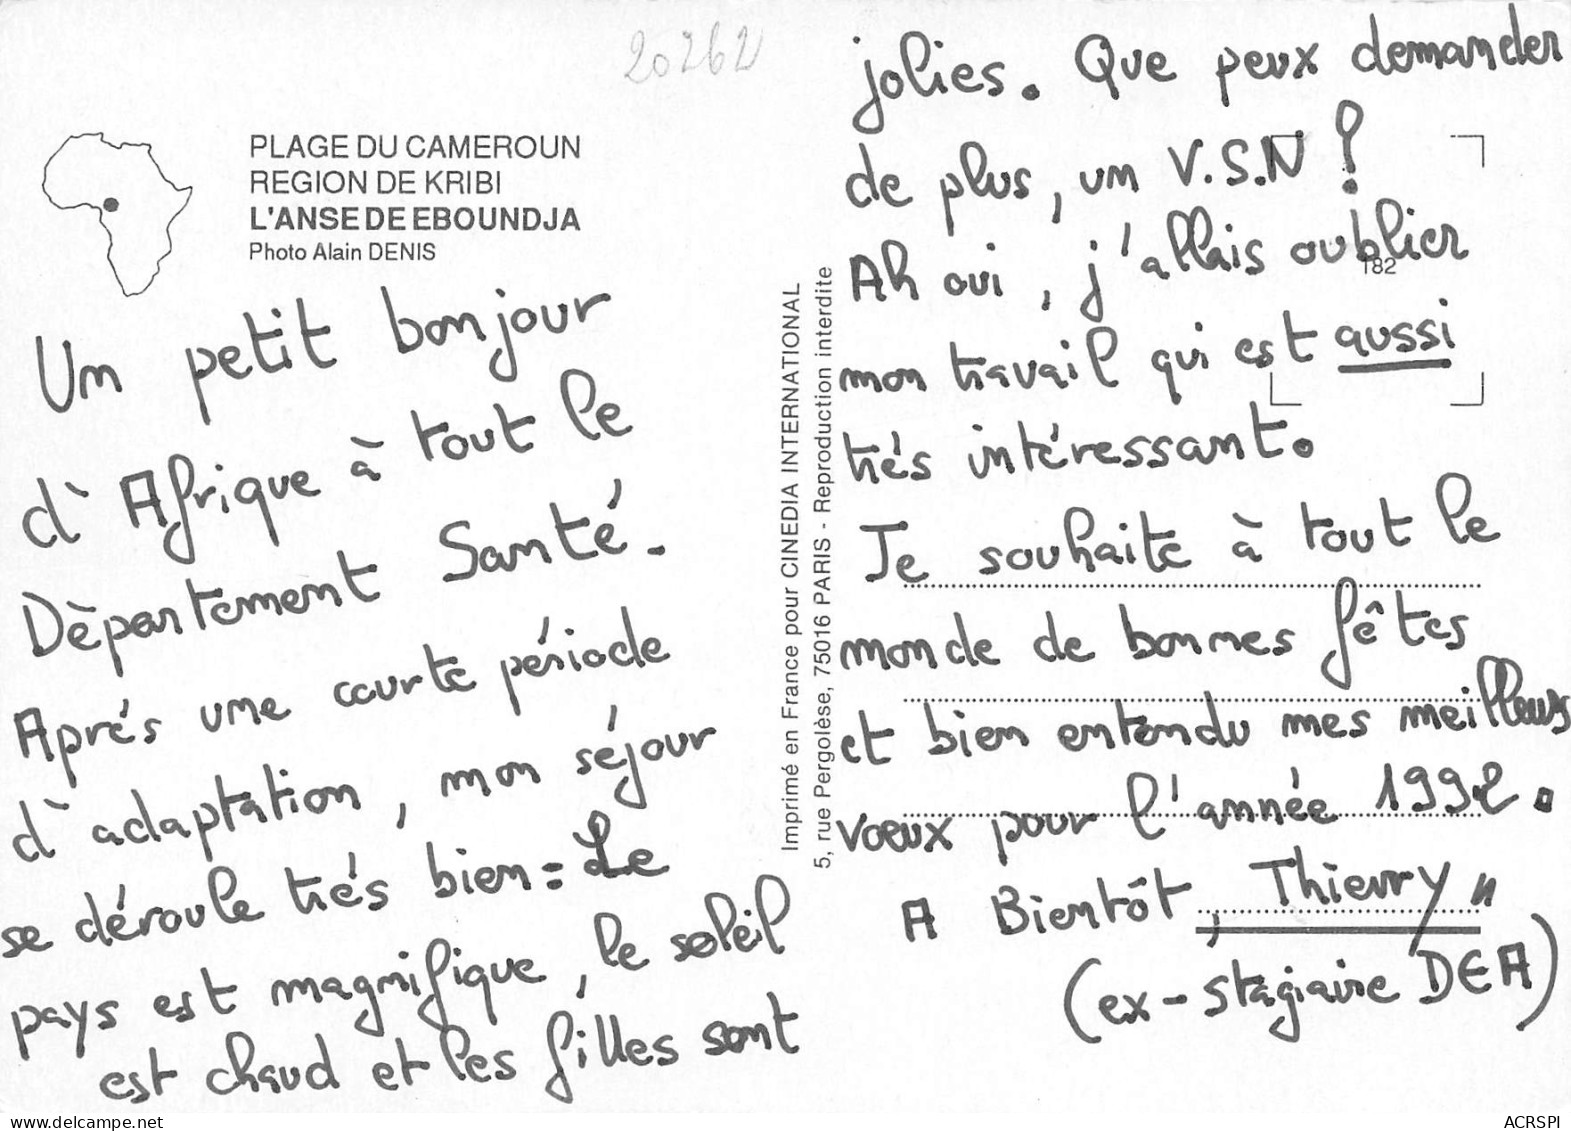 20262
PLAGE DU CAMEROUN
REGION DE KRIBI
L'ANSE DE EBOUNDJA
Photo Alain DENIS
Un petit bonjour
d'Afrique à tout le
Département Santé.
Aprés une courte période
d'adaptation, mon séjour
se déroule trés bien : Le
pays est magnifique, le soleil
est chaud et les filles sont
Imprimé en France pour CINEDIA INTERNATIONAL
5, rue Pergolèse, 75016 PARIS - Reproduction interdite
jolies. Que peux demander
de plus, un V.S.N ?
Ah oui, j'allais oublier
182
mon travail qui est aussi
trés intéressant.
Je souhaite à tout le
monde de bonnes fêtes
et bien entendu mes meilleurs
voeux pour l'année 1992.
A Bientôt, Thierry "
(ex-stagiaire DEA)
ACRSPI